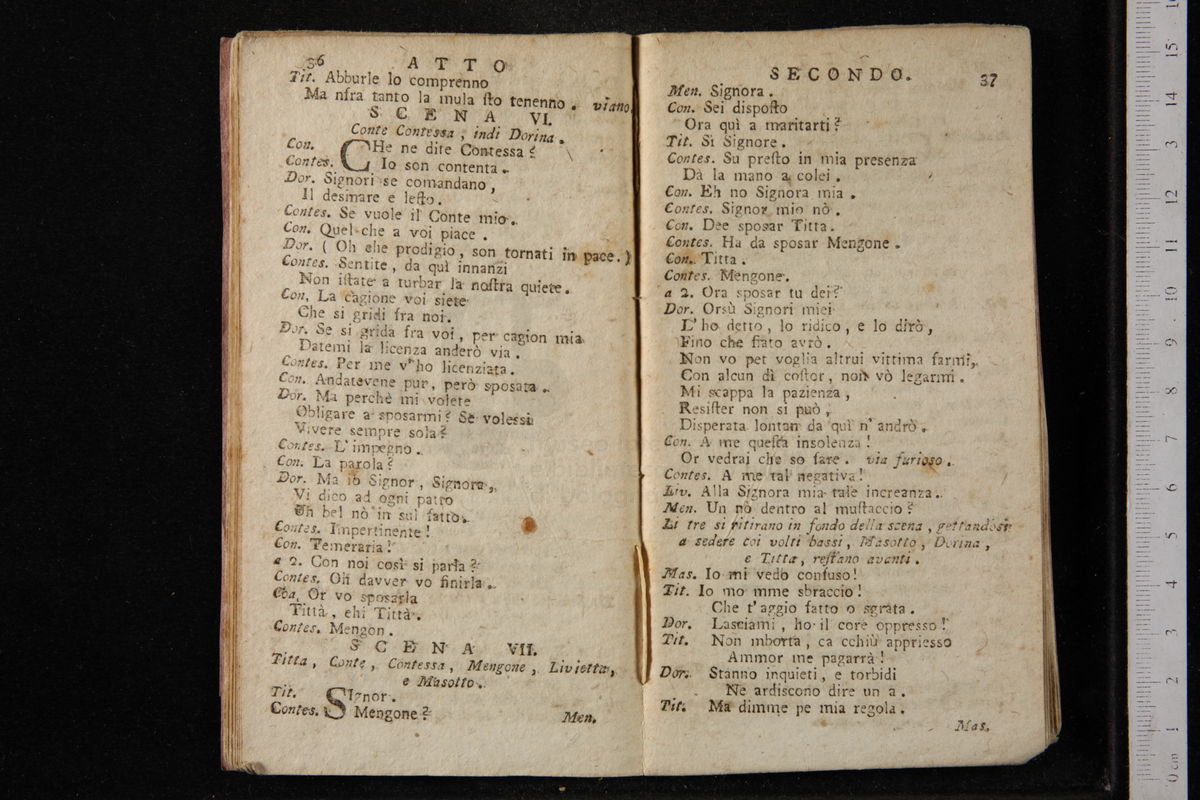 36 ATTO
Tit. Abburle lo comprenno
Ma nfra tanto la mula ſto tenenno. viano.
SCENA VI.
Conte Contessa, indi Dorina.
Con. CHe ne dite Contessa?
Contes. Io son contenta.
Dor. Signori se comandano,
Il desinare e leſto.
Contes. Se vuole il Conte mio.
Con. Quel che a voi piace.
Dor. (Oh che prodigio, son tornati in pace.)
Contes. Sentite, da quì innanzi
Non iſtate a turbar la noſtra quiete.
Con, La cagione voi siete
Che si gridi fra noi.
Dor. Se si grida fra voi, per cagion mia
Datemi la licenza anderò via.
Contes. Per me v'ho licenziata.
Con. Andatevene pur, però sposata.
Dor. Ma perchè mi volete
Obligare a sposarmi? Se volessi
Vivere sempre sola?
Contes. L'impegno.
Con. La parola?
Dor. Ma io Signor, Signora,
Vi dico ad ogni patto
Un bel nò in sul fatto.
Contes. Impertinente!
Con. Temeraria!
a 2. Con noi così si parla?
Contes. Oh davver vo finirla.
Con. Or vo sposarla
Titta, ehi Titta.
Contes. Mengon.
SCENA VII.
Titta, Conte, Contessa, Mengone, Livietta,
e Masotto.
Tit. SIgnor.
Contes. Mengone?
Men.
SECONDO. 37
Men. Signora.
Con. Sei dispoſto
Ora quì a maritarti?
Tit. Si Signore.
Contes. Su preſto in mia presenza
Dà la mano a colei.
Con. Eh no Signora mia.
Contes. Signor mio nò.
Con. Dee sposar Titta.
Contes. Ha da sposar Mengone.
Con. Titta.
Contes. Mengone.
a 2. Ora sposar tu dei?
Dor. Orsù Signori miei
L'ho detto, lo ridico, e lo dirò,
Fino che fiato avrò.
Non vo pet voglia altrui vittima farmi,
Con alcun di coſtor, non vò legarmi.
Mi scappa la pazienza,
Resiſter non si può,
Disperata lontan da quì n'andrò.
Con. A me queſta insolenza!
Or vedrai che so fare. via furioso.
Contes. A me tal negativa!
Liv. Alla Signora mia tale increanza.
Men. Un nò dentro al muſtaccio?
Li tre si ritirano in fondo della scena, gettandosi
a sedere coi volti bassi, Masotto, Dorina,
e Titta, reſtano avanti.
Mas. Io mi vedo confuso!
Tit. Io mo mme sbraccio!
Che t'aggio fatto o sgrata.
Dor. Lasciami, ho il core oppresso!
Tit. Non mborta, ca cchiù appriesso
Ammor me pagarrà!
Dor. Stanno inquieti, e torbidi
Nè ardiscono dire un a.
Tit. Ma dimme pe mia regola.
Mas.